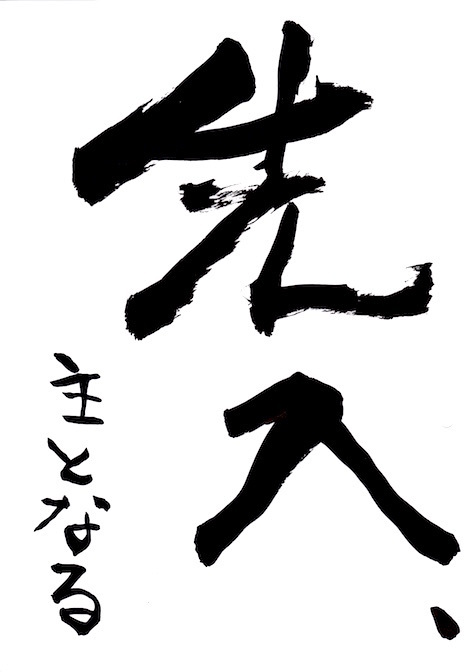 先入、
主となる